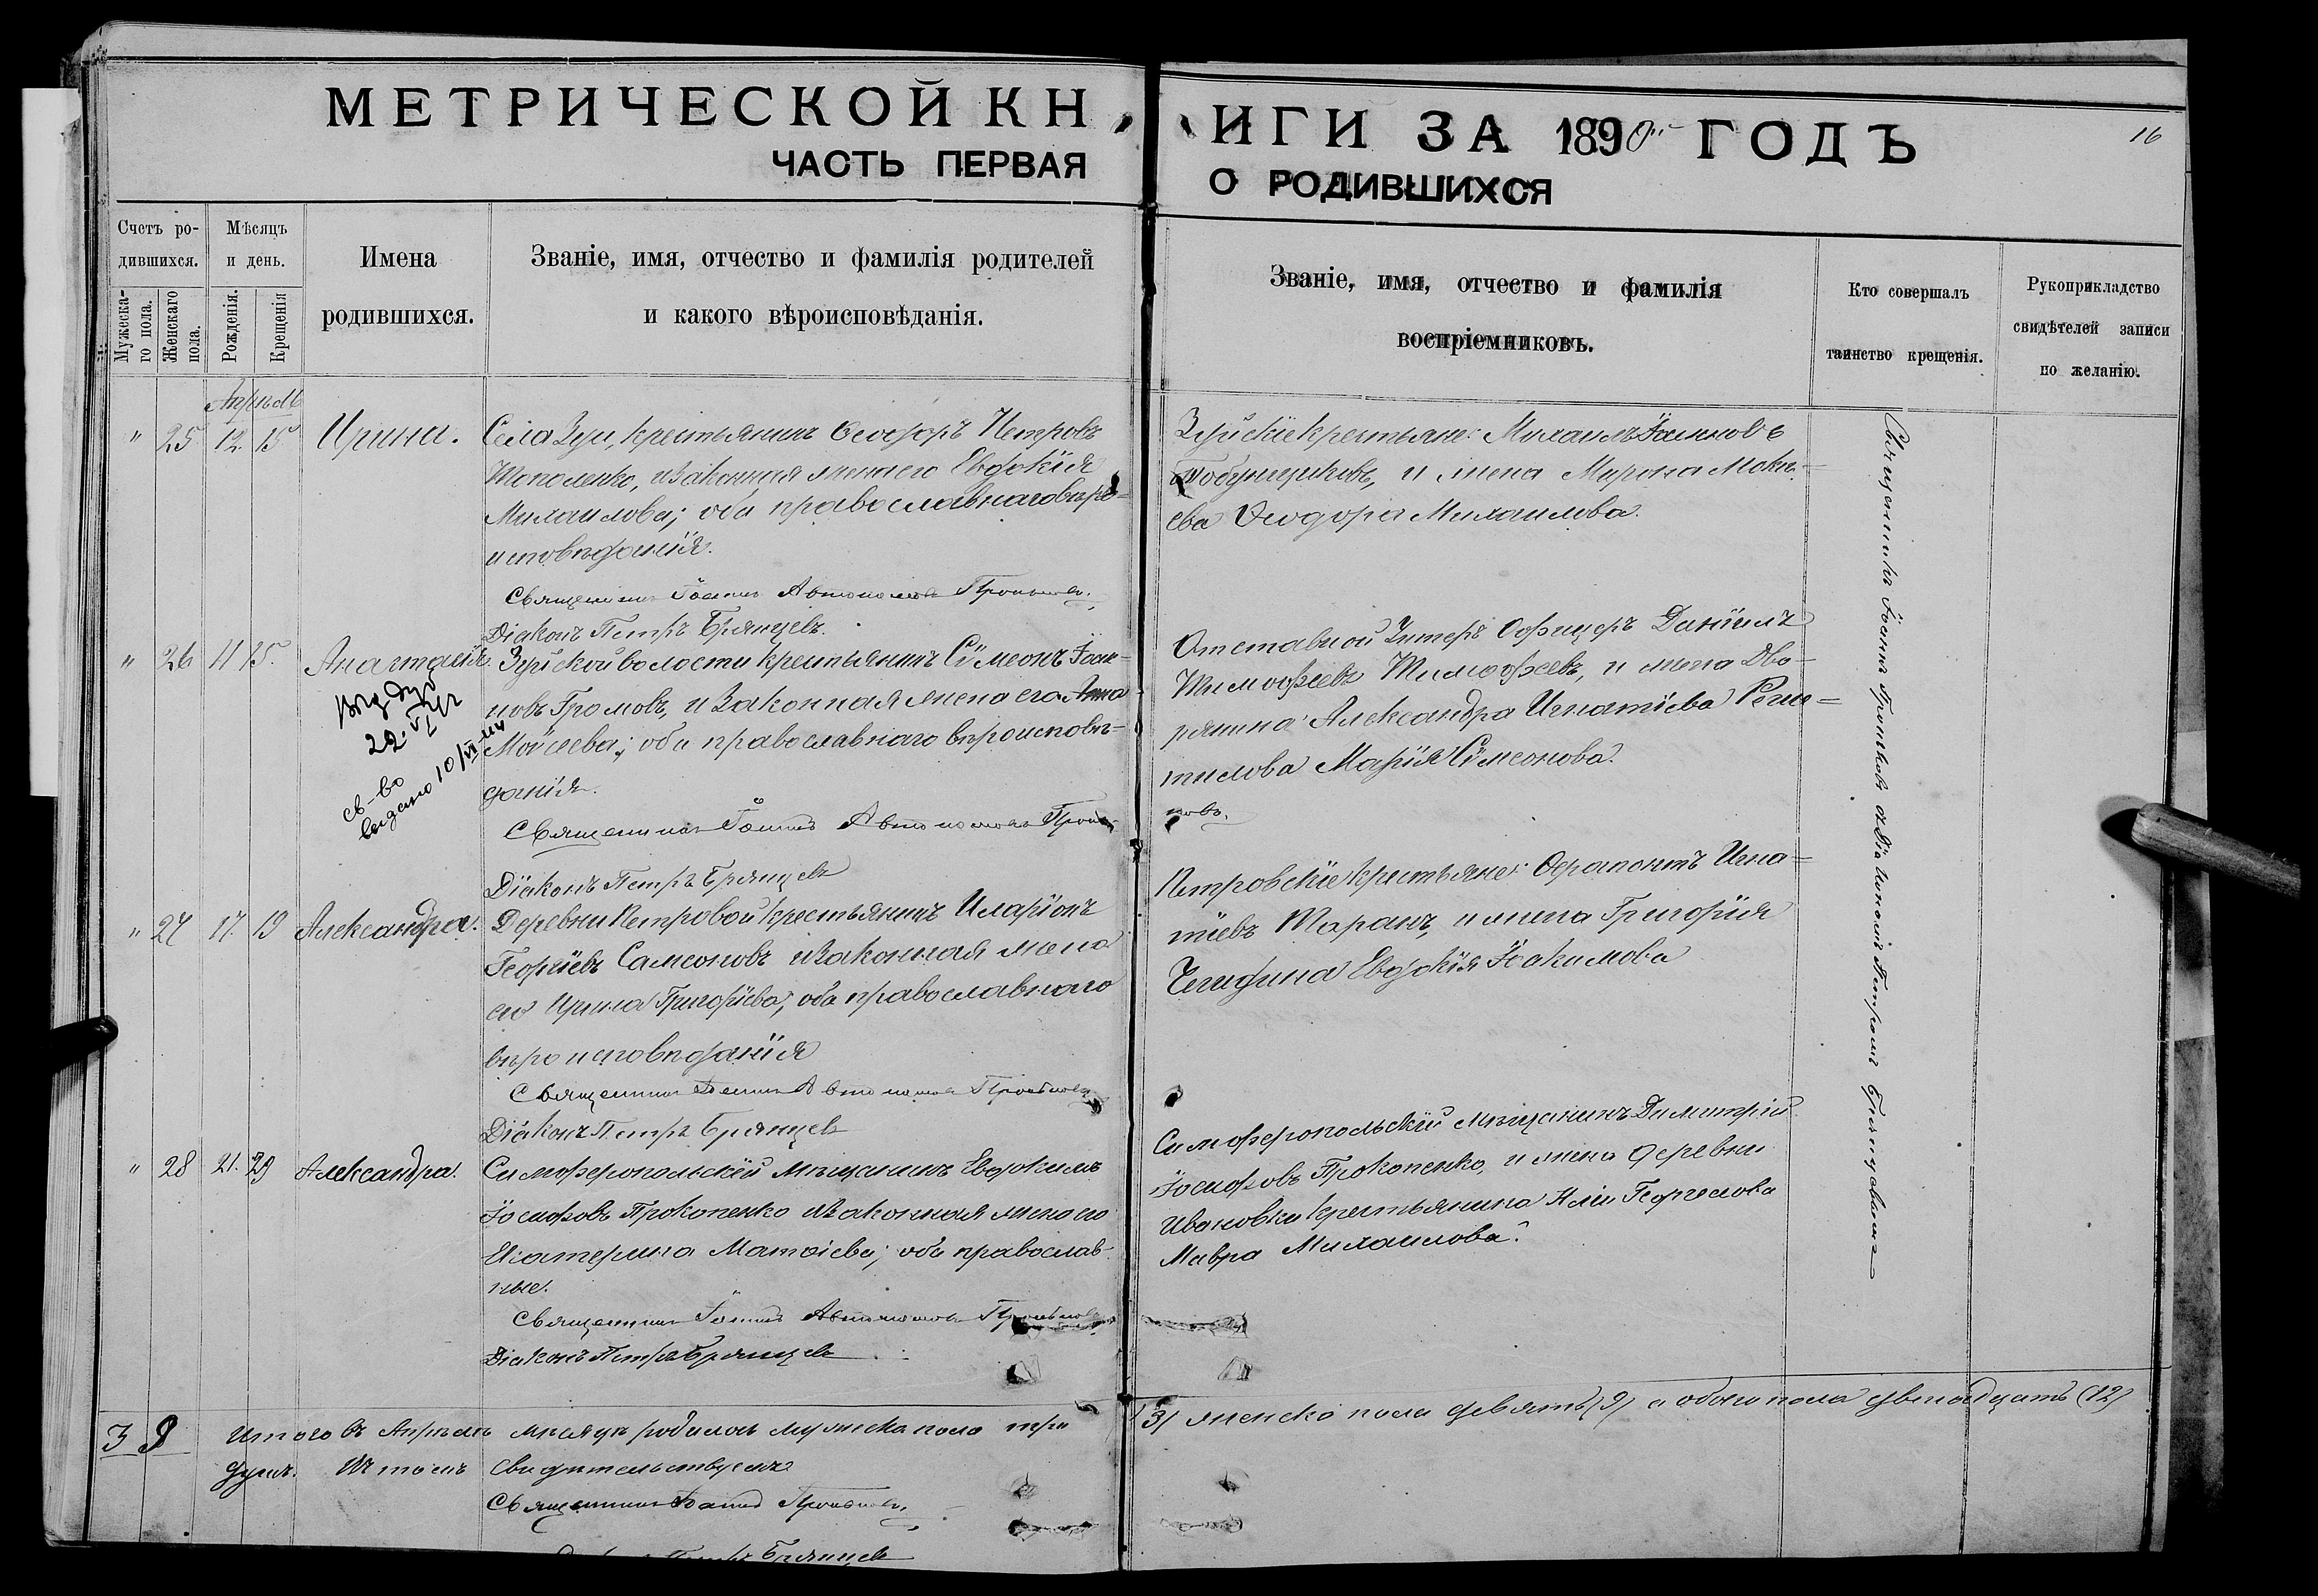 МЕТРИЧЕСКОЙ КН
ИГИ ЗА 1890 ГОДЪ
16
ЧАСТЬ ПЕРВАЯ
О РОДИВШИХСЯ
Счетъ ро-
дившихся.
Мужеска-
го пола.
Женскаго
пола.
Мѣсяцъ
и день.
Рожденія.
Крещенія
Имена
родившихся.
Званіе, имя, отчество и фамилія родителей
и какого вѣроисповѣданія.
Званіе, имя, отчество и фамилія
воспріемниковъ.
Кто совершалъ
таинство крещенія.
Рукоприкладство
свидѣтелей записи
по желанію.
Апрѣль
" 25 12. 15 Ирина.
Села Зуи, крестьянинъ Ѳеодоръ Петровъ
Тополенко, и законная жена его Евдокія
Михаилова; оба православнаго вѣро-
исповѣданія.
Священникъ Іоаннъ Автономовъ
Діаконъ Петръ Брянцевъ.
Зуйскіе крестьяне: Михаилъ Іоанновъ
и жена Мирона Моки-
ева Ѳеодора Михаилова.
" 26 11 15. Анастасія.
22.
св-во
выдано 10/VI
Зуйской волости крестьянинъ Сѵмеонъ Іоан-
новъ Громовъ, и законная жена его Анна
Моисеева; оба православнаго вѣроисповѣ-
данія.
Священникъ Іоаннъ Автономовъ
Діаконъ Петръ Брянцевъ
Отставной Унтеръ Офицеръ Даніилъ
Тимоѳеевъ Тимоѳеевъ, и жена Дво-
рянина Александра Игнатіева
Марія Сѵмеонова.
новъ.
" 27 17. 19 Александра.
Деревни Петровой крестьянинъ Иларіонъ
Георгіевъ Самсоновъ и законная жена
его Ирина Григоріева; оба православнаго
вѣроисповѣданія
Священникъ Іоаннъ Автономовъ
Діаконъ Петръ Брянцевъ
Петровскіе крестьяне: Ѳерапонтъ Игна-
тіевъ Таранъ, и жена Григорія
Евдокія Іоакимова
" 28 21. 29 Александра.
Симферопольскій мѣщанинъ Евдокимъ
Іосифовъ Прокопенко и законная жена его
Екатерина Матѳіева; оба православ-
ные.
Священникъ Іоаннъ Автономовъ
Діаконъ Петръ Брянцевъ
Симферопольскій мѣщанинъ Димитрій
Іосифовъ Прокопенко, и жена деревни
Ивановки крестьянина
Мавра Михаилова.
Священникъ Іоаннъ съ Діакономъ Петромъ Брянцевымъ
3 9 Итого въ Апрѣлѣ мѣсяцѣ родилось мужеска пола три
(3) женска пола девять (9) а обоего пола двѣнадцать (12)
душъ. Въ томъ свидѣтельствуемъ
Священникъ Іоаннъ
Петръ Брянцевъ